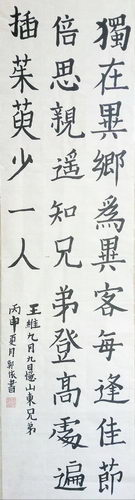 獨在異鄉為異客每逢佳節
倍思親遥知兄弟登高處遍
插茱萸少一人
王維九月九日憶山東兄弟
丙申夏月